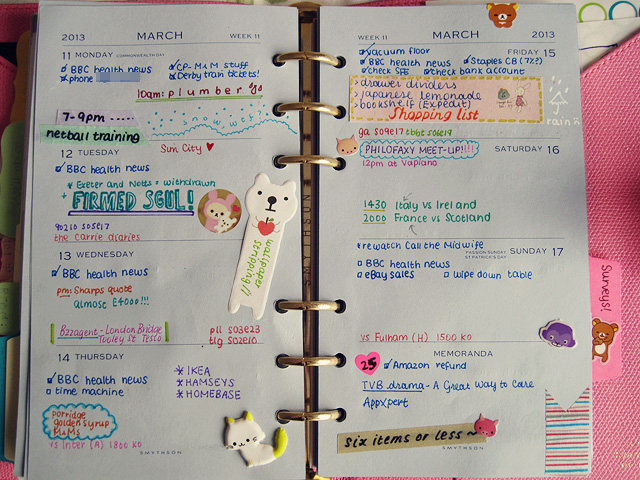 2013 MARCH WEEK 11
11 MONDAY COMMONWEALTH DAY
BBC health news
phone
CP- M&M stuff
Derby train tickets!
10am: plumber
7-9pm
snow wet
netball training
12 TUESDAY
Sim City ♥
BBC health news
* Exeter and Notts = withdrawn
+ FIRMED SGUL!
90210 S05E17
the carrie diaries
13 WEDNESDAY
BBC health news
pm: Sharps quote
almost £4000!!!
wallpaper stripping!!
Bzzagent - London Bridge
Tooley St Tesco
pll S03E23
tlg S02E10
14 THURSDAY
BBC health news
time machine
* IKEA
* HAMSEYS
* HOMEBASE
porridge
golden syrup
M&Ms
vs Inter (A) 1800 KO
SMYTHSON
WEEK 11 MARCH 2013
FRIDAY 15
vacuum floor
BBC health news
Staples CB (7x?)
check SFE
check bank account
> drawer dividers
> Japanese lemonade
> bookshelf (Expedit)
Shopping list
rain
ga S09E17 tbbt S06E19
SATURDAY 16
PHILOFAXY MEET-UP!!!!
12pm at Vapiano
1430 Italy vs Ireland
2000 France vs Scotland
* rewatch Call the Midwife
PASSION SUNDAY
ST PATRICK'S DAY
SUNDAY 17
BBC health news
eBay sales
wipe down table
vs Fulham (H) 1500 KO
MEMORANDA
25
Amazon refund
TVB drama - A Great Way to Care
AppXpert
six items or less ~
SMYTHSON
Surveys!